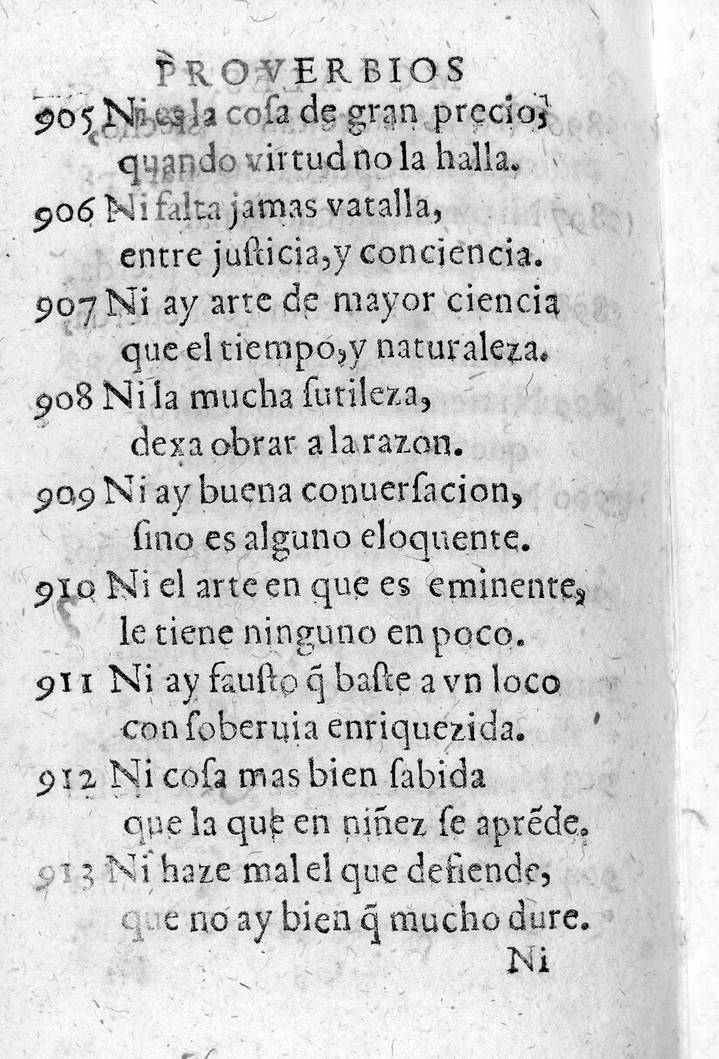 PROVERBIOS
905 Ni es la coſa de gran precio,
quando virtud no la halla.
906 Ni falta jamas vatalla,
entre juſticia, y conciencia.
907 Ni ay arte de mayor ciencia
que el tiempo, y naturaleza.
908 Ni la mucha ſutileza,
dexa obrar a la razon.
909 Ni ay buena conuerſacion,
ſino es alguno eloquente.
910 Ni el arte en que es eminente,
le tiene ninguno en poco.
911 Ni ay fauſto q̃ baſte a vn loco
con ſoberuia enriquezida.
912 Ni coſa mas bien ſabida
que la que en niñez ſe aprẽde.
913 Ni haze mal el que defiende,
que no ay bien q̃ mucho dure.
Ni